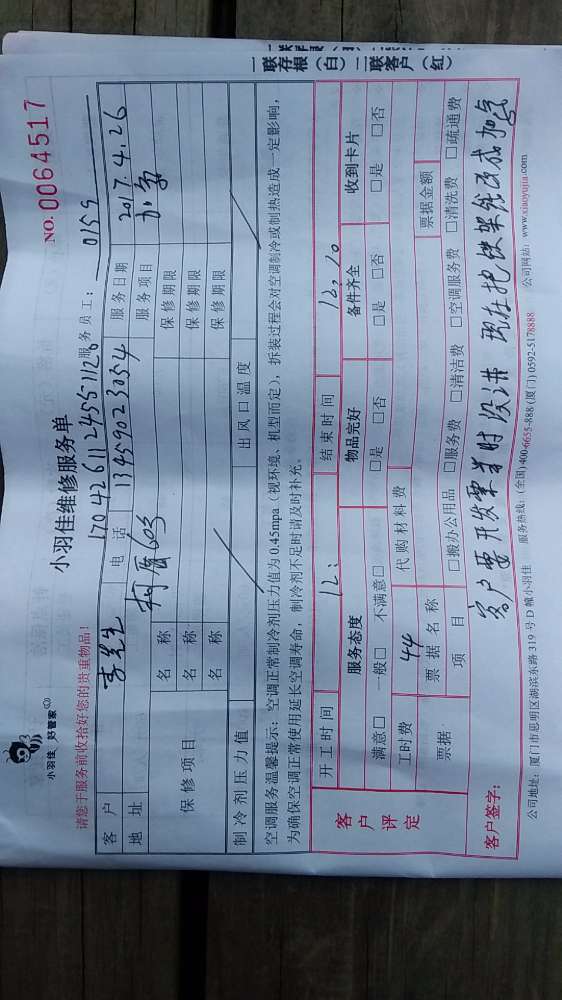 一联存根（白）二联客户（红）
小羽佳 好管家
小羽佳维修服务单
NO. 0064517
请您于服务前收拾好您的贵重物品！
1704261124551126
服务员工： 0159
客户 李先生 电话 13459023054 服务日期 2017.4.26
地址 603 服务项目
保修项目 名称 保修期限
名称 保修期限
名称 保修期限
制冷剂压力值 出风口温度
空调服务温馨提示：空调正常制冷剂压力值为 0.45mpa（视环境、机型而定），拆装过程会对空调制冷或制热造成一定影响，
为确保空调正常使用延长空调寿命，制冷剂不足时请及时补充。
客户评定 开工时间 12: 结束时间 12:10
服务态度 物品完好 备件齐全 收到卡片
满意□ 一般□ 不满意□ □是 □否 □是 □否 □是 □否
工时费 44 代购材料费
票据 票据名称 票据金额
项目 □搬办公用品 □服务费 □清洁费 □空调服务费 □清洗费 □疏通费
客户签字： 客户要开发票当时没讲 现在把快架统改成加
公司地址：厦门市思明区湖滨东路 319 号 D 幢小羽佳 服务热线：(全国)400-6655-888 (厦门)0592-5178888 公司网站：www.xiaoyujia.com